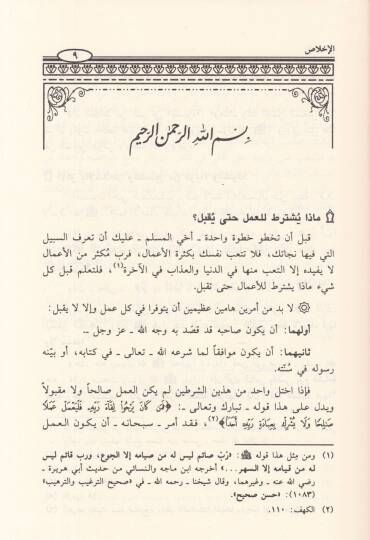 الإخلاص
٩
بسم الله الرحمن الرحيم
ماذا يُشترط للعمل حتى يُقبل؟
قبل أن تخطو خطوة واحدة - أخي المسلم - عليك أن تعرف السبيل
التي فيها نجاتك، فلا تتعب نفسك بكثرة الأعمال، فرب مُكثر من الأعمال
لا يفيده إلا التعب منها في الدنيا والعذاب في الآخرة(١)، فلتعلم قبل كل
شيء ماذا يشترط للأعمال حتى تقبل.
لا بد من أمرين هامين عظيمين أن يتوفرا في كل عمل وإلا لا يقبل:
أولهما: أن يكون صاحبه قد قصد به وجه الله - عز وجل -.
ثانيهما: أن يكون موافقاً لما شرعه الله - تعالى - في كتابه، أو بيّنه
رسوله في سُنّته.
فإذا اختل واحد من هذين الشرطين لم يكن العمل صالحاً ولا مقبولاً
ويدل على هذا قوله - تبارك وتعالى -: ﴿فَمَن كَانَ يَرْجُوا۟ لِقَآءَ رَبِّهِۦ فَلْيَعْمَلْ عَمَلًا
صَـٰلِحًا وَلَا يُشْرِكْ بِعِبَادَةِ رَبِّهِۦٓ أَحَدًۢا﴾(٢)، فقد أمر - سبحانه - أن يكون العمل
(١) ومن مِثل هذا قوله ﷺ: «رُبّ صائم ليس له من صيامه إلا الجوع، ورب قائم ليس
له من قيامه إلا السهر...» أخرجه ابن ماجه والنسائي من حديث أبي هريرة -
رضي الله عنه - وغيرهما، وقال شيخنا - رحمه الله - في «صحيح الترغيب والترهيب»
(١٠٨٣): «حسن صحيح».
(٢) الكهف: ١١٠.